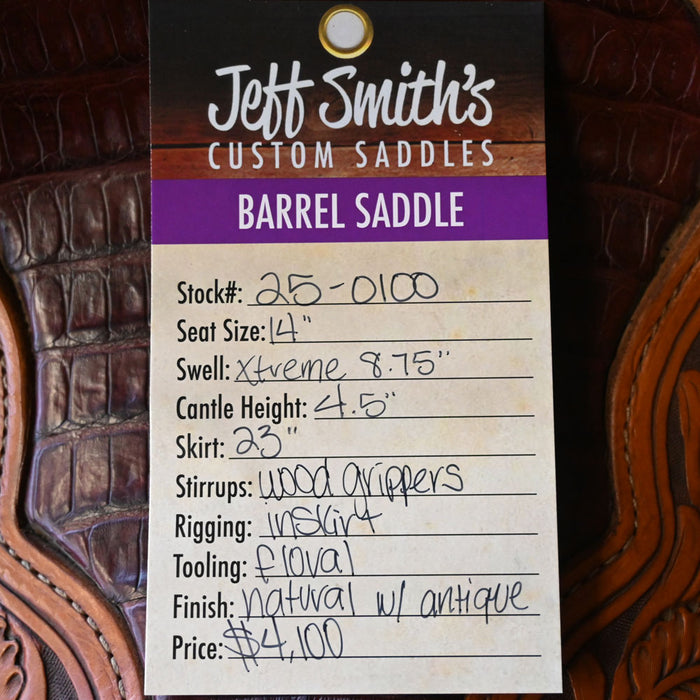 Jeff Smith's
CUSTOM SADDLES
BARREL SADDLE
Stock#: 25-0100
Seat Size: 14"
Swell: Xtreme 8.75"
Cantle Height: 4.5"
Skirt: 23"
Stirrups: wood grippers
Rigging: inskirt
Tooling: floral
Finish: natural w/ antique
Price: $4,100